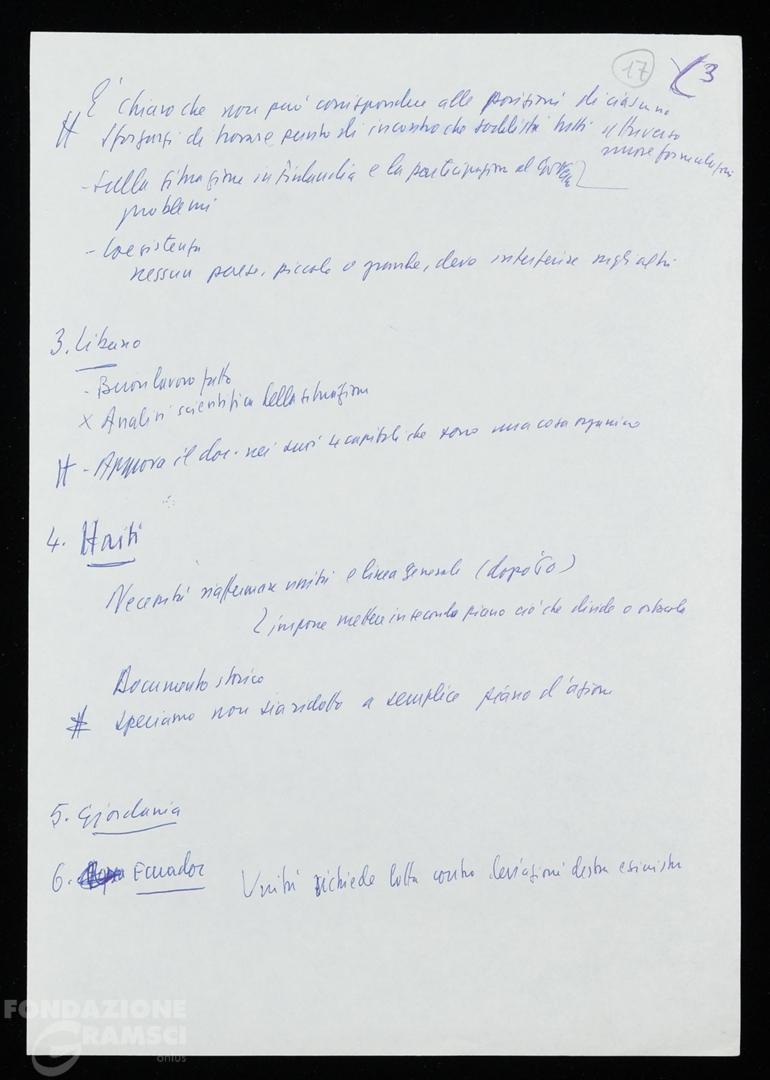 17 3
E' chiaro che non può corrispondere alle posizioni di ciascuno
# sforzarsi di trovare punto di incontro che soddisfi tutti attraverso
nuove formulazioni
- sulla situazione in Finlandia e la partecipazione al Governo
problemi
- Coesistenza
nessun paese, piccolo o grande, deve interferire sugli altri
3. Libano
- Buon lavoro fatto
x Analisi scientifica della situazione
# - Approva il doc. nei suoi capitoli che sono una cosa organica
4. Haiti
Necessità riaffermare unità e linea generale (dopo '60)
impone mettere in secondo piano ciò che divide o ostacola
Documento storico
# speriamo non sia ridotto a semplice piano d'azione
5. Giordania
6. Ecuador Unità richiede lotta contro deviazioni destra e sinistra
FONDAZIONE
GRAMSCI
onlus